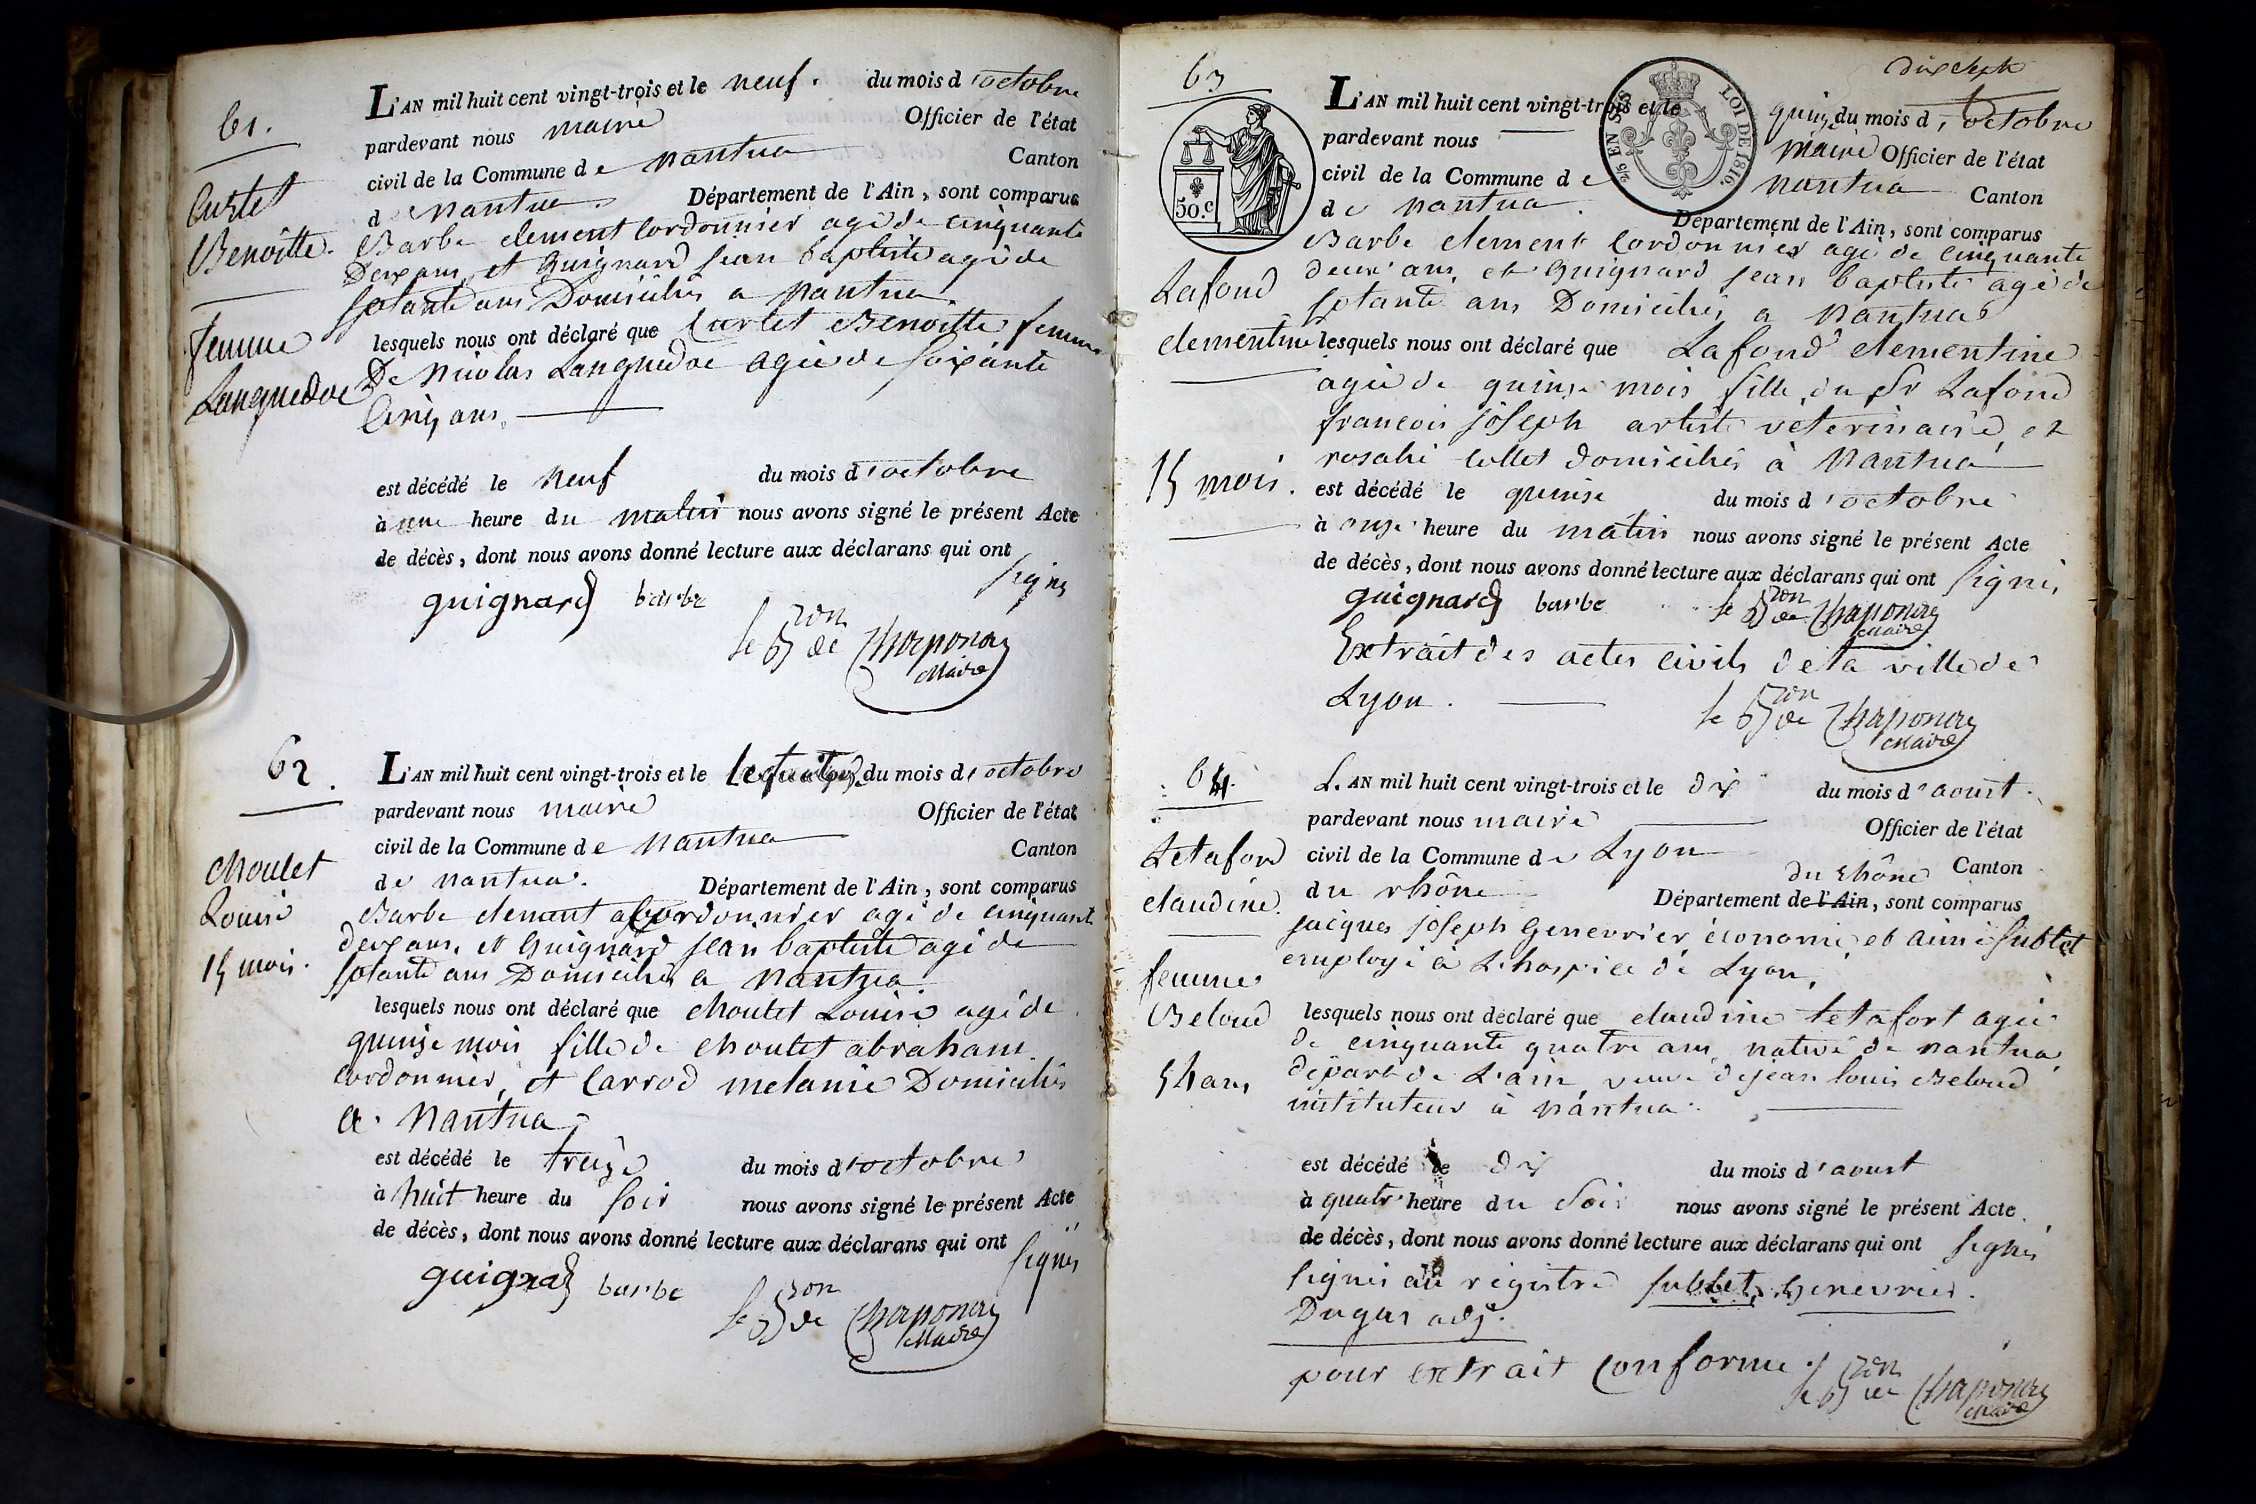 61.
Curtet
Benoitte.
femme
Languedoc
L'AN mil huit cent vingt-trois et le neuf. du mois d'octobre
pardevant nous maire Officier de l'état
civil de la Commune de Nantua Canton
de Nantua. Département de l'Ain, sont comparus
Barbe clement Cordonnier agé de cinquante
Deux ans, et Guignard jean baptiste agé de
soptante ans Domiciliés a Nantua
lesquels nous ont déclaré que Curtet Benoitte femme
De Nicolas Languedoc agée de soixante
Cinq ans.
est décédé le neuf du mois d'octobre
à une heure du matin nous avons signé le présent Acte
de décès, dont nous avons donné lecture aux déclarans qui ont
signés
guignard barbe
le Bon de Chaponay
Maire
62.
Choulet
Louise
15 mois.
L'AN mil huit cent vingt-trois et le le quatorze du mois d'octobre
pardevant nous maire Officier de l'état
civil de la Commune de Nantua Canton
de Nantua. Département de l'Ain, sont comparus
Barbe clement cordonnier agé de cinquante
deux ans, et Guignard jean baptiste agé de
soptante ans Domiciliés a Nantua
lesquels nous ont déclaré que Choulet Louise agé de
quinze mois fille de Choulet abraham
Cordonnier, et Carrod melanie Domiciliés
a Nantua
est décédé le treize du mois d'octobre
à huit heure du soir nous avons signé le présent Acte
de décès, dont nous avons donné lecture aux déclarans qui ont
signés
guignard barbe
le Bon de Chaponay
Maire
dix sept
63
50.c
2/5 EN SUS
LOI DE 1816.
Lafond
clementine
15 mois.
L'AN mil huit cent vingt-trois et le quinze du mois d'octobre
pardevant nous maire Officier de l'état
civil de la Commune de Nantua Canton
de Nantua. Département de l'Ain, sont comparus
Barbe clement Cordonnier agé de cinquante
deux ans, et Guignard jean baptiste agé de
soptante ans Domiciliés a Nantua
lesquels nous ont déclaré que Lafond clementine
agée de quinze mois fille du Sr Lafond
francois joseph artiste véterinaire, et
rosalie Collet domiciliés à Nantua
est décédé le quinze du mois d'octobre
à onze heure du matin nous avons signé le présent Acte
de décès, dont nous avons donné lecture aux déclarans qui ont signés
guignard barbe le Bon de Chaponay
Maire
Extrait des actes civils de la ville de
Lyon.
le Bon de Chaponay
Maire
64.
Letafort
claudine.
femme
Beloud
54 ans
L'AN mil huit cent vingt-trois et le dix du mois d'aoust
pardevant nous maire Officier de l'état
civil de la Commune de Lyon Canton
du rhône du Rhône Département de l'Ain, sont comparus
jacques joseph Genevrier, économe, et aimé Sublet
employé à L'hospice de Lyon,
lesquels nous ont déclaré que claudine letafort agée
de cinquante quatre ans, native de Nantua
départ. de L'ain, veuve de jean louis Beloud
instituteur à Nantua.
est décédé le dix du mois d'aoust
à quatre heure du soir nous avons signé le présent Acte
de décès, dont nous avons donné lecture aux déclarans qui ont signés
signés au registre Sublet, Genevrier.
Dugas adj.
pour extrait Conforme.
le Bon de Chaponay
Maire